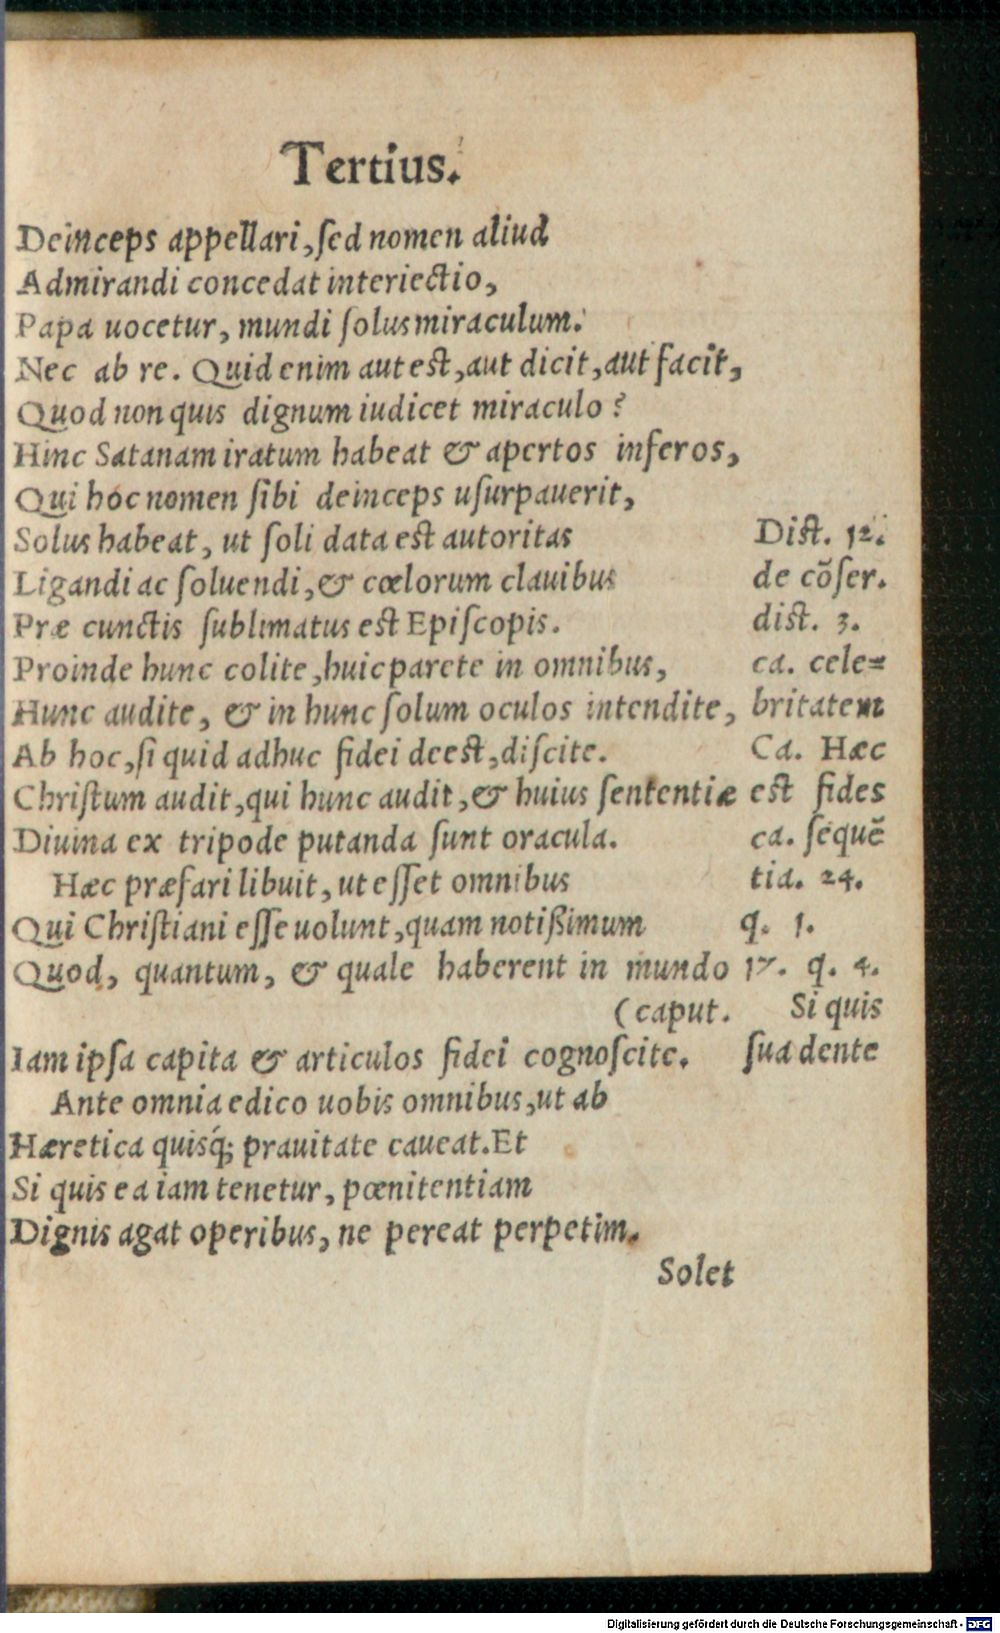 Tertius.
Deinceps appellari, ſed nomen aliud
Admirandi concedat interiectio,
Papa uocetur, mundi ſolus miraculum.
Nec ab re. Quid enim aut est, aut dicit, aut facit,
Quod non quis dignum iudicet miraculo?
Hinc Satanam iratum habeat & apertos inferos,
Qui hoc nomen ſibi deinceps uſurpauerit,
Solus habeat, ut ſoli data est autoritas
Ligandi ac ſoluendi, & cœlorum clauibus
Præ cunctis ſublimatus est Epiſcopis.
Proinde hunc colite, huic parete in omnibus,
Hunc audite, & in hunc ſolum oculos intendite,
Ab hoc, ſi quid adhuc fidei deest, diſcite.
Chriſtum audit, qui hunc audit, & huius ſententiæ
Diuina ex tripode putanda ſunt oracula.
Hæc præfari libuit, ut eſſet omnibus
Qui Chriſtiani eſſe uolunt, quam notißimum
Quod, quantum, & quale haberent in mundo
(caput.
Iam ipſa capita & articulos fidei cognoſcite.
Ante omnia edico uobis omnibus, ut ab
Hæretica quisq́; prauitate caueat. Et
Si quis ea iam tenetur, pœnitentiam
Dignis agat operibus, ne pereat perpetim.
Solet
Dist. 12.
de cõſer.
dist. 3.
ca. cele=
britatem
Ca. Hæc
est fides
ca. ſequẽ
tia. 24.
q. 1.
17. q. 4.
Si quis
ſuadente
Digitalisierung gefördert durch die Deutsche Forschungsgemeinschaft - DFG